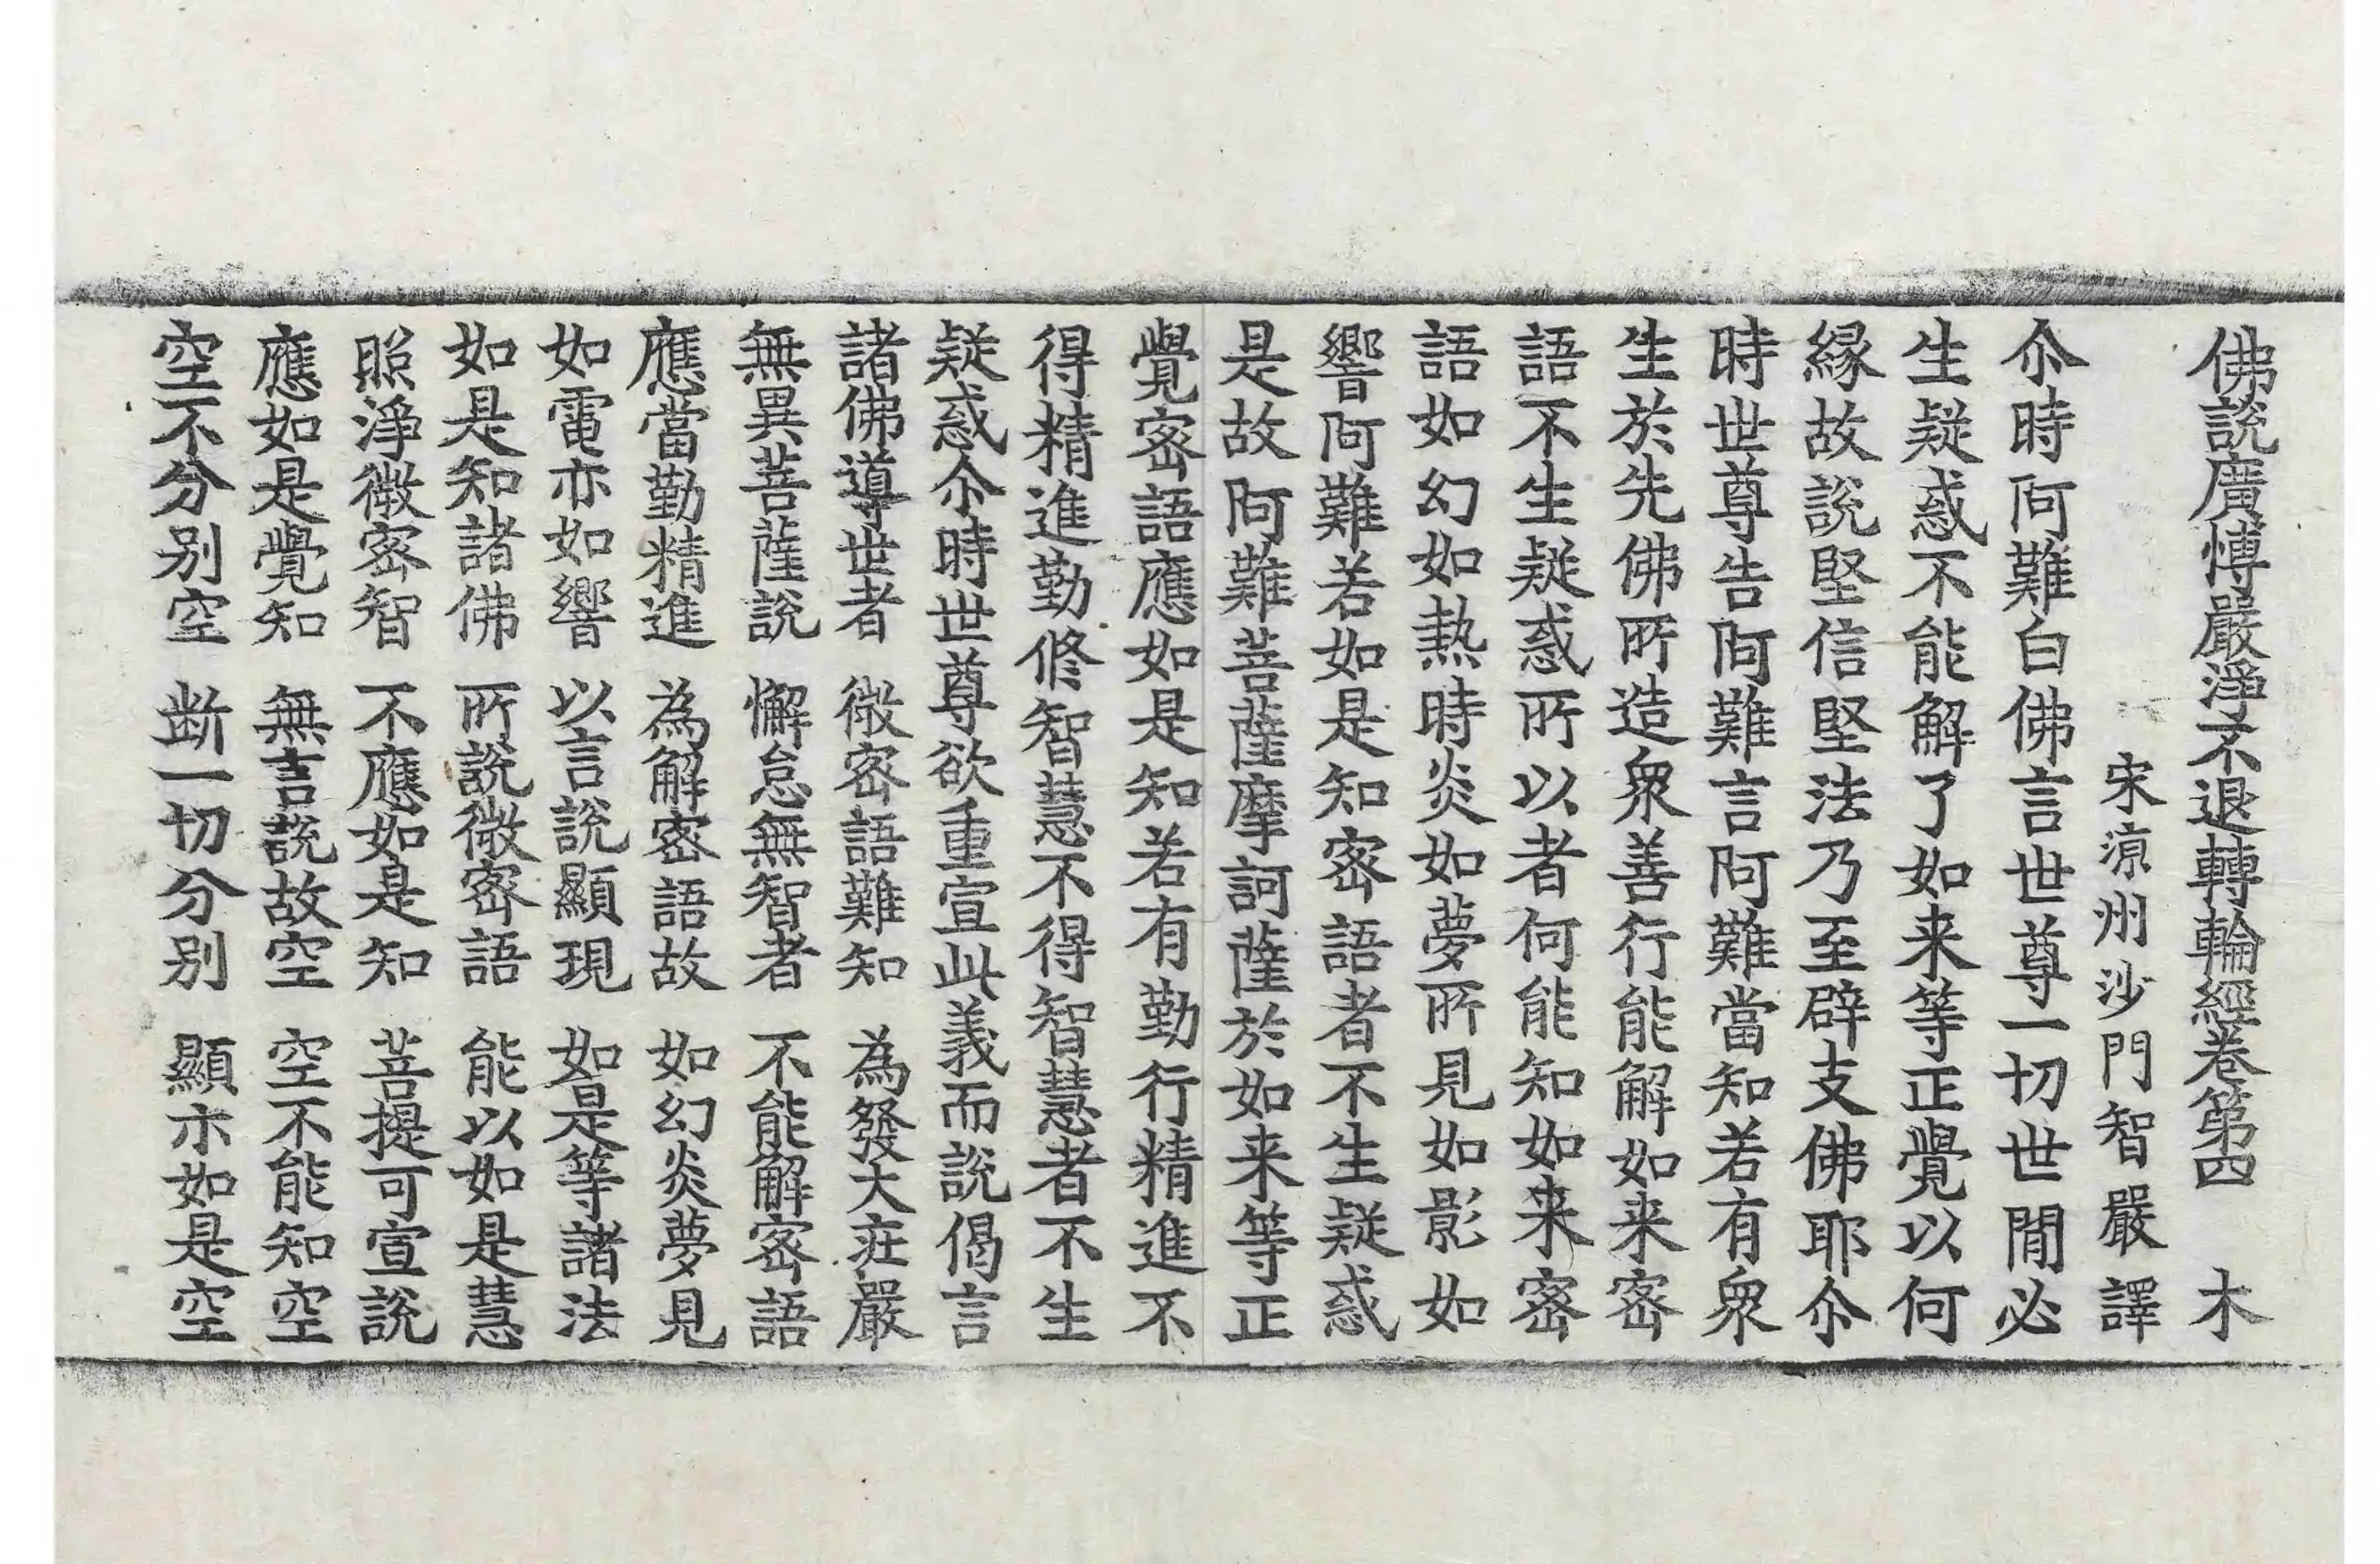 佛說廣博嚴淨不退轉輪經卷第四　木
宋涼州沙門智嚴譯
尒時阿難白佛言世尊一切世閒必
生疑惑不能解了如来等正覺以何
緣故說堅信堅法乃至辟支佛耶尒
時世尊告阿難言阿難當知若有衆
生於先佛所造衆善行能解如来密
語不生疑惑所以者何能知如来密
語如幻如熱時炎如夢所見如影如
響阿難若如是知密語者不生疑惑
是故阿難菩薩摩訶薩於如来等正
覺密語應如是知若有勤行精進不
得精進勤修智慧不得智慧者不生
疑惑尒時世尊欲重宣此義而說偈言
諸佛導世者　微密語難知　為發大莊嚴
無異菩薩說　懈怠無智者　不能解密語
應當勤精進　為解密語故　如幻炎夢見
如電亦如響　以言說顯現　如是等諸法
如是知諸佛　所說微密語　能以如是慧
照淨微密智　不應如是知　菩提可宣說
應如是覺知　無言說故空　空不能知空
空不分別空　断一切分別　顯示如是空